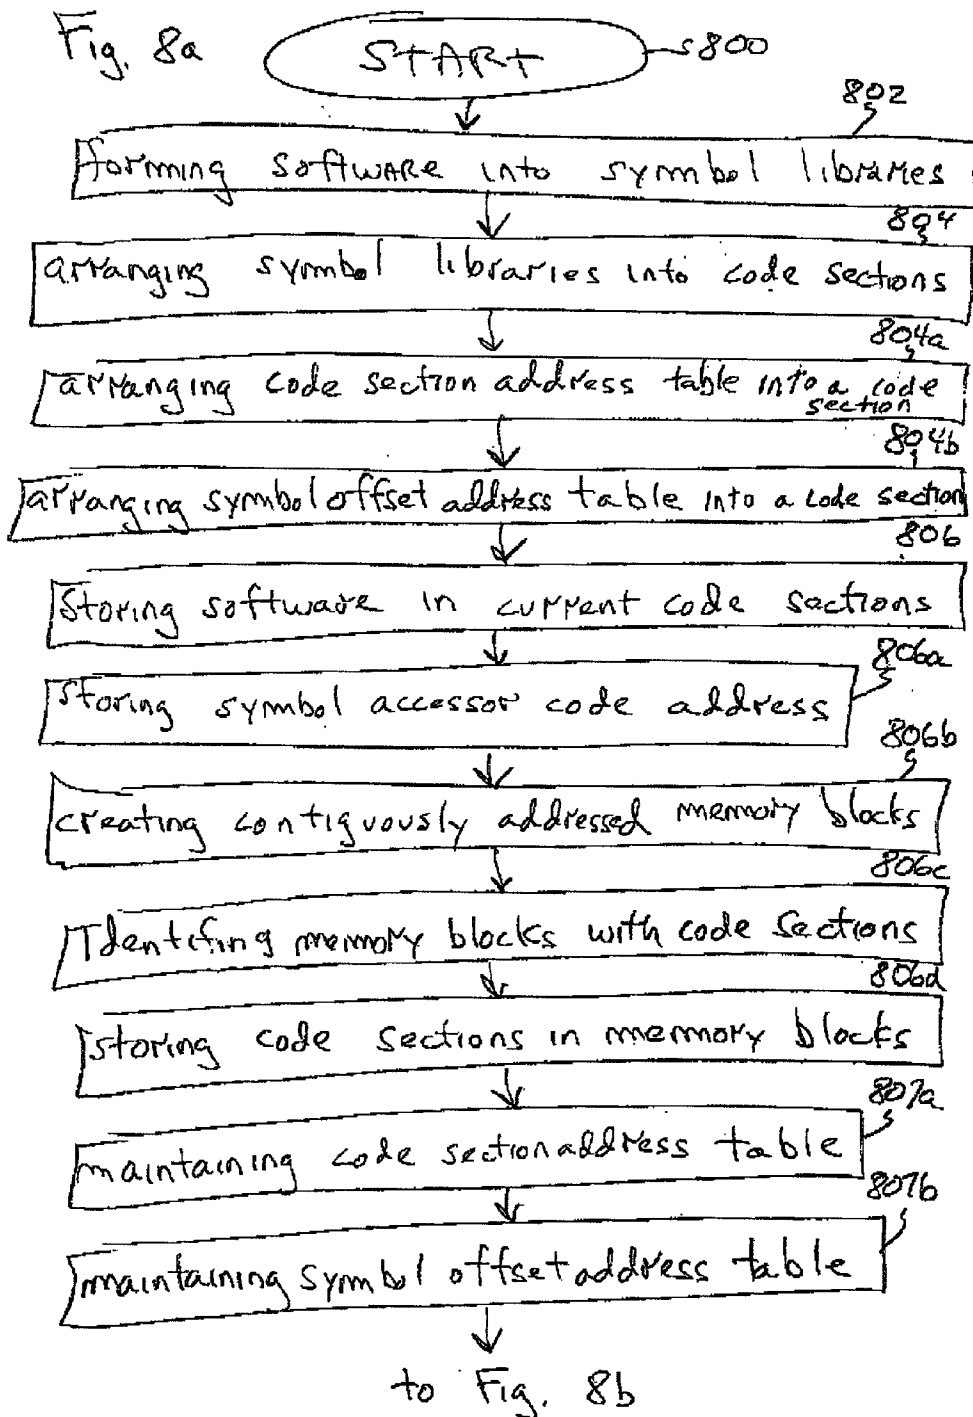 Fig. 8a
START
800
802
forming software into symbol libraries
804
arranging symbol libraries into code sections
804a
arranging code section address table into a code
section
804b
arranging symbol offset address table into a code section
806
Storing software in current code sections
806a
storing symbol accessor code address
806b
creating contiguously addressed memory blocks
806c
Identifing memory blocks with code sections
806d
storing code sections in memmory blocks
807a
maintaining code section address table
807b
maintaining symbol offset address table
to Fig. 8b